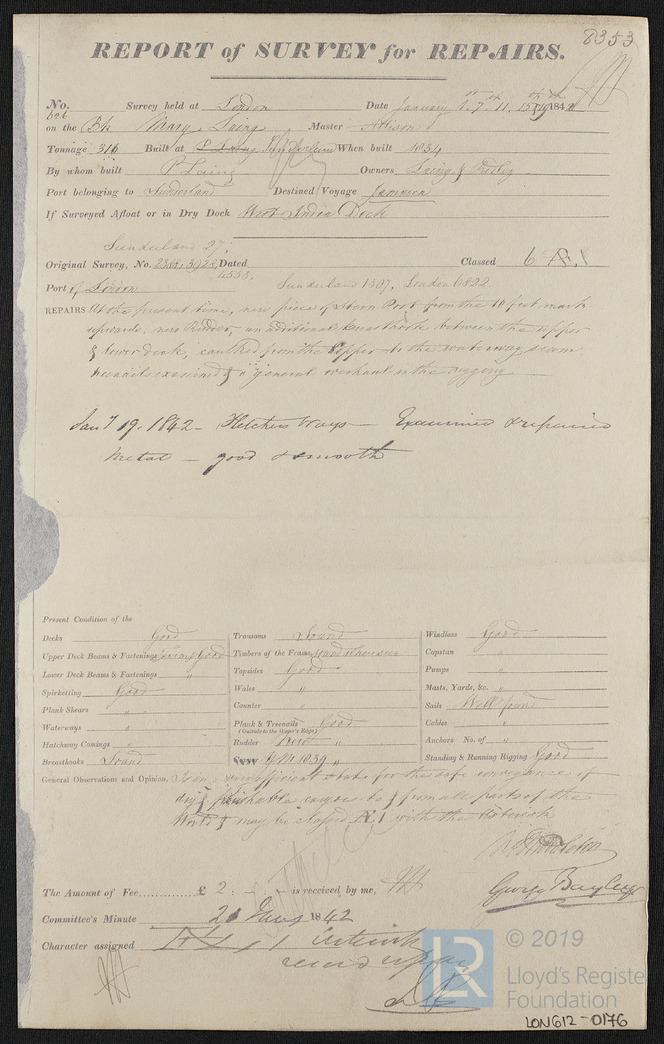 8353
REPORT of SURVEY for REPAIRS.
No. Survey held at London Date January 1. 7. 11. 15 1842
626
on the Bk Mary Laing Master Allison
Tonnage 316 Built at Sunderland When built 1834
By whom built P Laing Owners Laing & Ridley
Port belonging to Sunderland Destined Voyage Jamaica
If Surveyed Afloat or in Dry Dock West India Dock
Sunderland 27;
Original Survey, No. Dated Classed 6 Æ. 1
4533.
Port of London Sunderland 1307, London 6822
REPAIRS At the present time, new piece of Stern Post from the 10 feet mark
upwards, new Rudder, an additional breasthook between the upper
& lower deck, caulked from the Copper to the waterway seam
treenails examined & a general overhaul in the rigging
Jany 19. 1842 - Fletchers Ways - Examined & repaired
Metal - good & smooth
Present Condition of the
Decks Good
Upper Deck Beams & Fastenings Good
Lower Deck Beams & Fastenings "
Spirketting Good
Plank Shears "
Waterways "
Hatchway Comings "
Breasthooks Sound
Transoms Sound
Timbers of the Frame
Topsides Good
Wales "
Counter "
Plank & Treenails Good
(Outside to the Copper's Edge)
Rudder New
Y.M. 1839 "
Windlass Good
Capstan "
Pumps "
Masts, Yards, &c. "
Sails Well found
Cables "
Anchors No. of "
Standing & Running Rigging Good
General Observations and Opinion, Is in a sufficient state for the safe conveyance of
dry & perishable cargoes to & from all parts of the
World & may be classed Æ 1 with the Asterisk
George Bayley
The Amount of Fee............£ 2 : - : - is received by me,
Committee's Minute 21 Jany 1842
Character assigned Æ 1 Asterisk
© 2019
Lloyd's Registe
Foundation
LR
LON612-0176